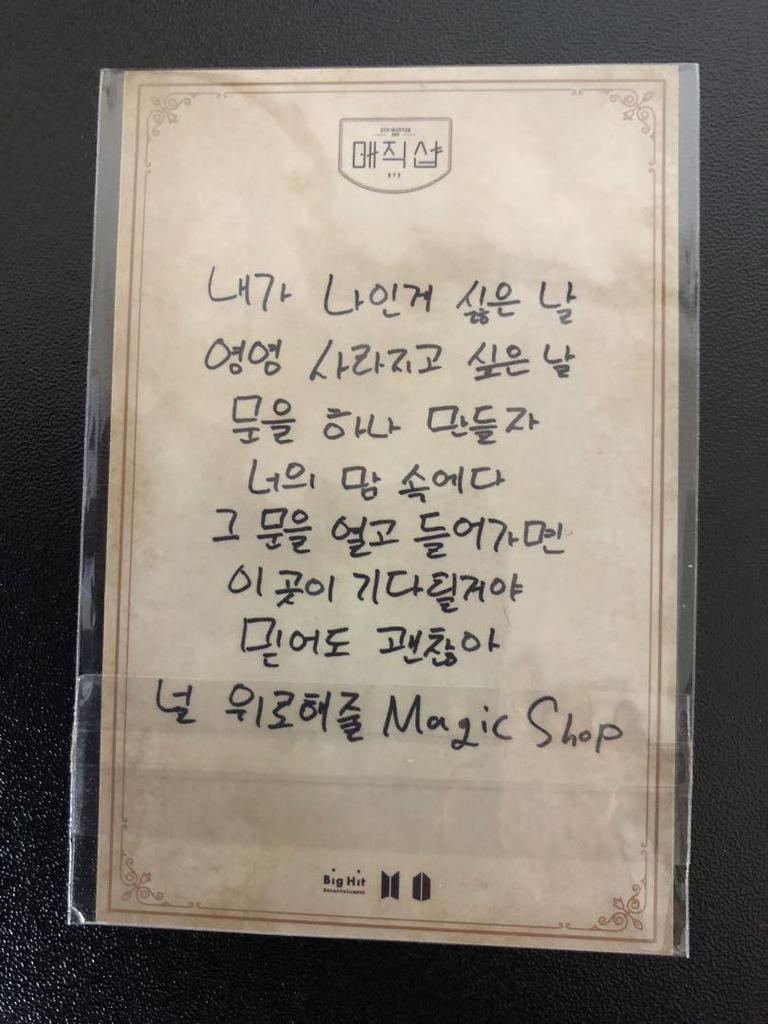 5TH MUSTER
매직샵
BTS
내가 나인게 싫은 날
영영 사라지고 싶은 날
문을 하나 만들자
너의 맘 속에다
그 문을 열고 들어가면
이 곳이 기다릴거야
믿어도 괜찮아
널 위로해줄 Magic Shop
Big Hit
Entertainment